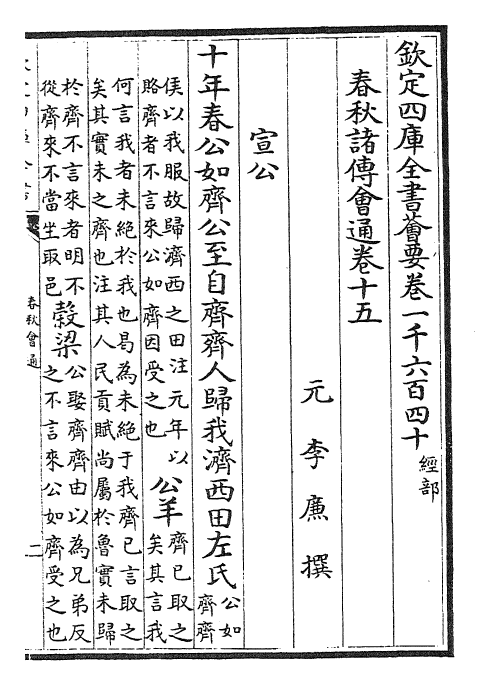 欽定四庫全書薈要卷一千六百四十 經部
春秋諸傳會通卷十五
元 李廉 撰
宣公
十年春公如齊公至自齊齊人歸我濟西田左氏 公如
齊齊
侯以我服故歸濟西之田注元年以
賂齊者不言來公如齊因受之也
公羊 齊已取之
矣其言我
何言我者未絕於我也曷為未絕于我齊已言取之
矣其實未之齊也注其人民貢賦尚屬於魯實未歸
於齊不言來者明不
從齊來不當坐取邑
穀梁 公娶齊齊由以為兄弟反
之不言來公如齊受之也
春秋會通